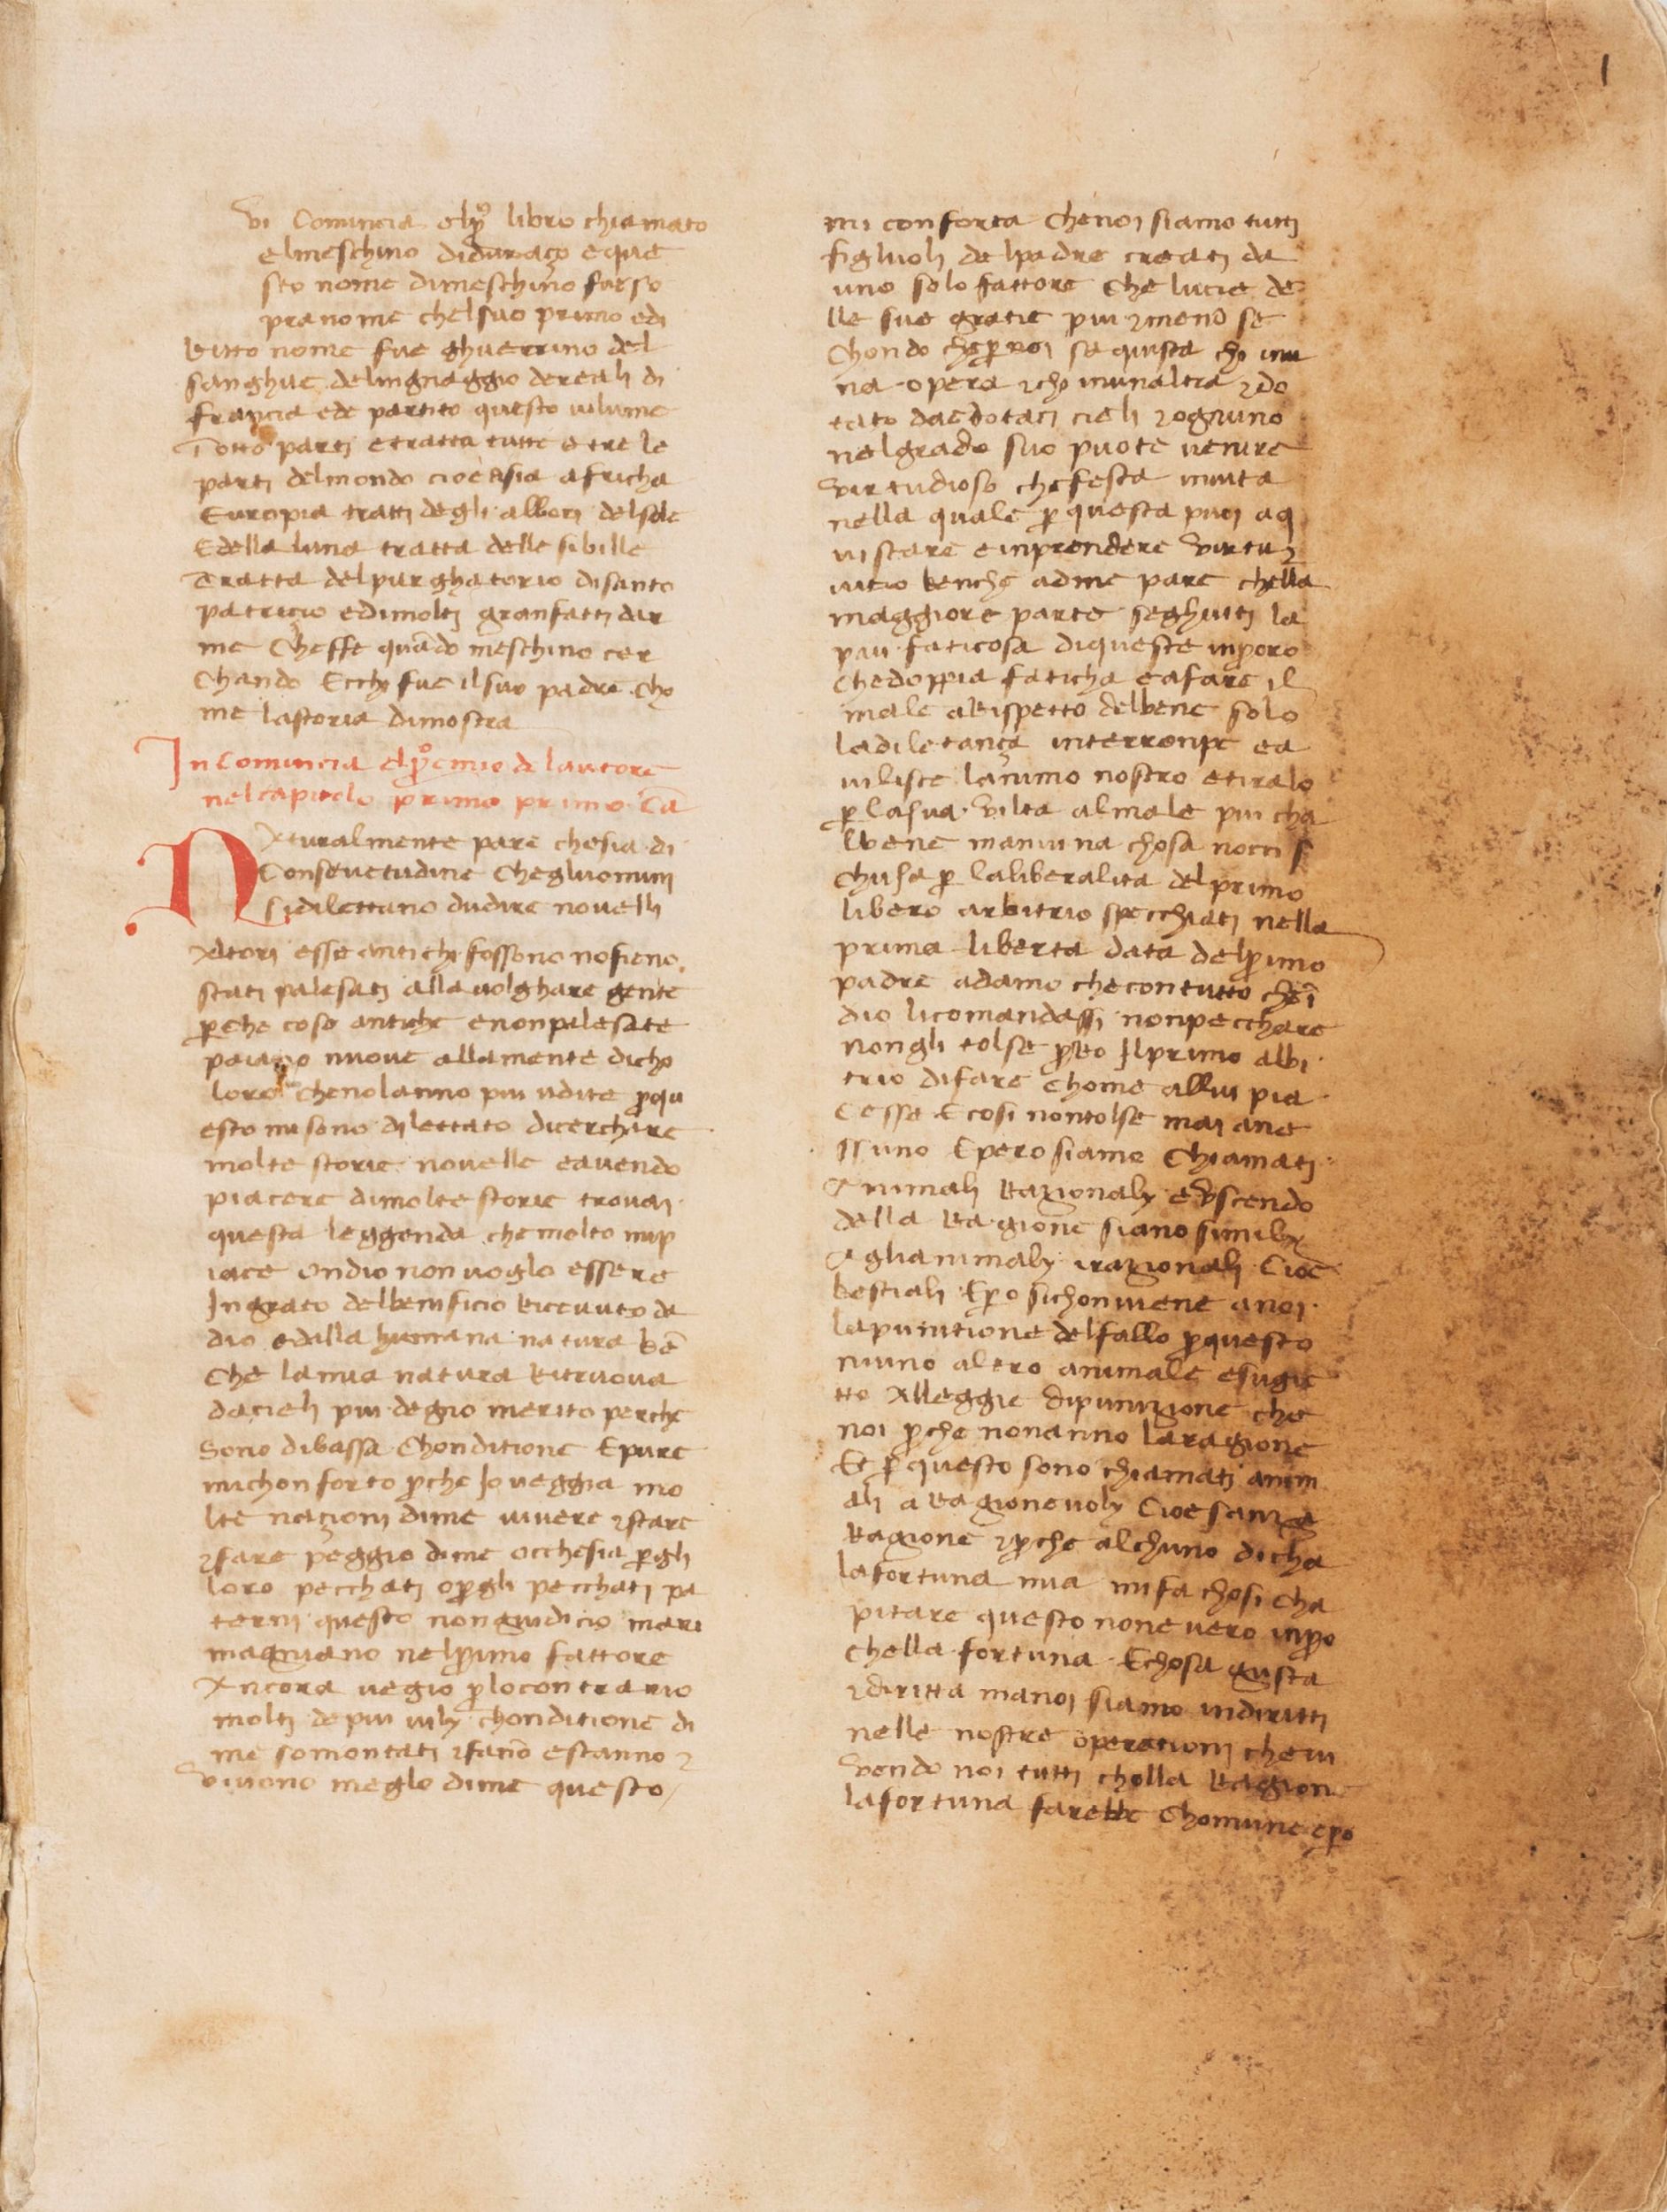 1
vi Comincia elp͂o libro chiamato
elmeschino diduraço eque
sto nome dimeschino fu e so
pranome chelsuo primo edi
Ritto nome fue ghuerrino del
sanghue delingnaggio dereali di
francia ede partito questo vilume
Iotto parti etratta tutte etre le
parti delmondo cioe asia africha
Europia tratti degli albori delsole
Edella luna tratta delle sibille
Tratta delpurghatorio disanto
patriçio edimolti granfatti dar
me Cheffe quādo meschino cer
Chando Ecchi fue ilsuo padre Cho
me lastoria dimostra
Incomincia elp͂oemio delautore
nelcapitolo primo primo Ca
Naturalmente pare chesia di
Consuetudine Chegluomini
sidilettano dudire novelli
Attori esse antichi fossono nosieno
stati palesati alla volghare gente
p̱che cose antiche enonpalesate
paiano nuove allamente dicho
loro chenolanno piu udite p̱qu
esto misono dilettato dicerchare
molte storie novelle eavendo
piacere dimolte storie trovai
questa leggenda che molto mip
iace ondio non voglo essere
Ingrato delbenificio Ricevuto da
dio edalla humana natura bē
che lamia natura Ritruova
dacieli piu degio merito perche
Sono dibassa Chonditione Epure
michonforto p̱che Io veggia mo
lte naçioni dime vivere ⁊stare
⁊fare peggio dime occhesia p̱gli
loro pecchati op̱gli pecchati pa
terni questo non giudicio mari
magniano nelp̱rimo fattore
Ancora vegio p̱locontrario
molti depiu vily chonditione di
me somontati ⁊fano estanno ⁊
vivono meglo dime questo
mi conforta Chenoi siamo tutti
figluoli delpadre creati da
uno solo fattore Che lucie de
lle sue gratie piu ⁊meno se
Chondo chep̱noi saquista chi inu
na opera ⁊chi inunaltra ⁊do
tato daedotaci cieli ⁊ognuno
nelgrado suo puote venire
virtudioso chefesta invita
nella quale p̱ questa puoi aq
uistare einprendere virtu⁊
vicio benche adme pare chella
maggiore parte seghuiti la
piu faticosa diqueste inp̱oro
chedoppia faticha eafare il
male aRispetto delbene solo
ladiletança interronpe ea
vilisce lanimo nostro etiralo
p̱ lasua vilta almale piu cha
lbene maniuna chosa nocci s
chusa p̱ laliberalita delprimo
libero arbitrio specchiati nella
prima liberta data delp̱rimo
padre adamo checontutto cheī
dio licomandassi nonpecchare
nongli tolse p̱ero Ilprimo albi
trio difare Chome allui pia
Cesse Ecosi nontolse mai ane
ssuno Epero siamo Chiamati
Animali Razionaly euscendo
della Ragione siano simily
Agliannimaly irazionali Cioe
bestiali Ep̱o sichonviene anoi
lapunitione delfallo p̱questo
niuno altro animale esugie
tto Alleggie dipunizione che
noi p̱che nonanno laragione
Et p̱ questo sono chiamati anim
ali aRagionevoly Cioe sanza
Ragione ⁊p̱che alchuno dicha
lafortuna mia mifa chosi Cha
pitare questo none vero inp̱o
chella fortuna Echosa giusta
⁊diritta manoi siamo indiritti
nelle nostre operationi chevi
vendo noi tutti cholla Ragione
lafortuna farebbe Chomune ep̱o